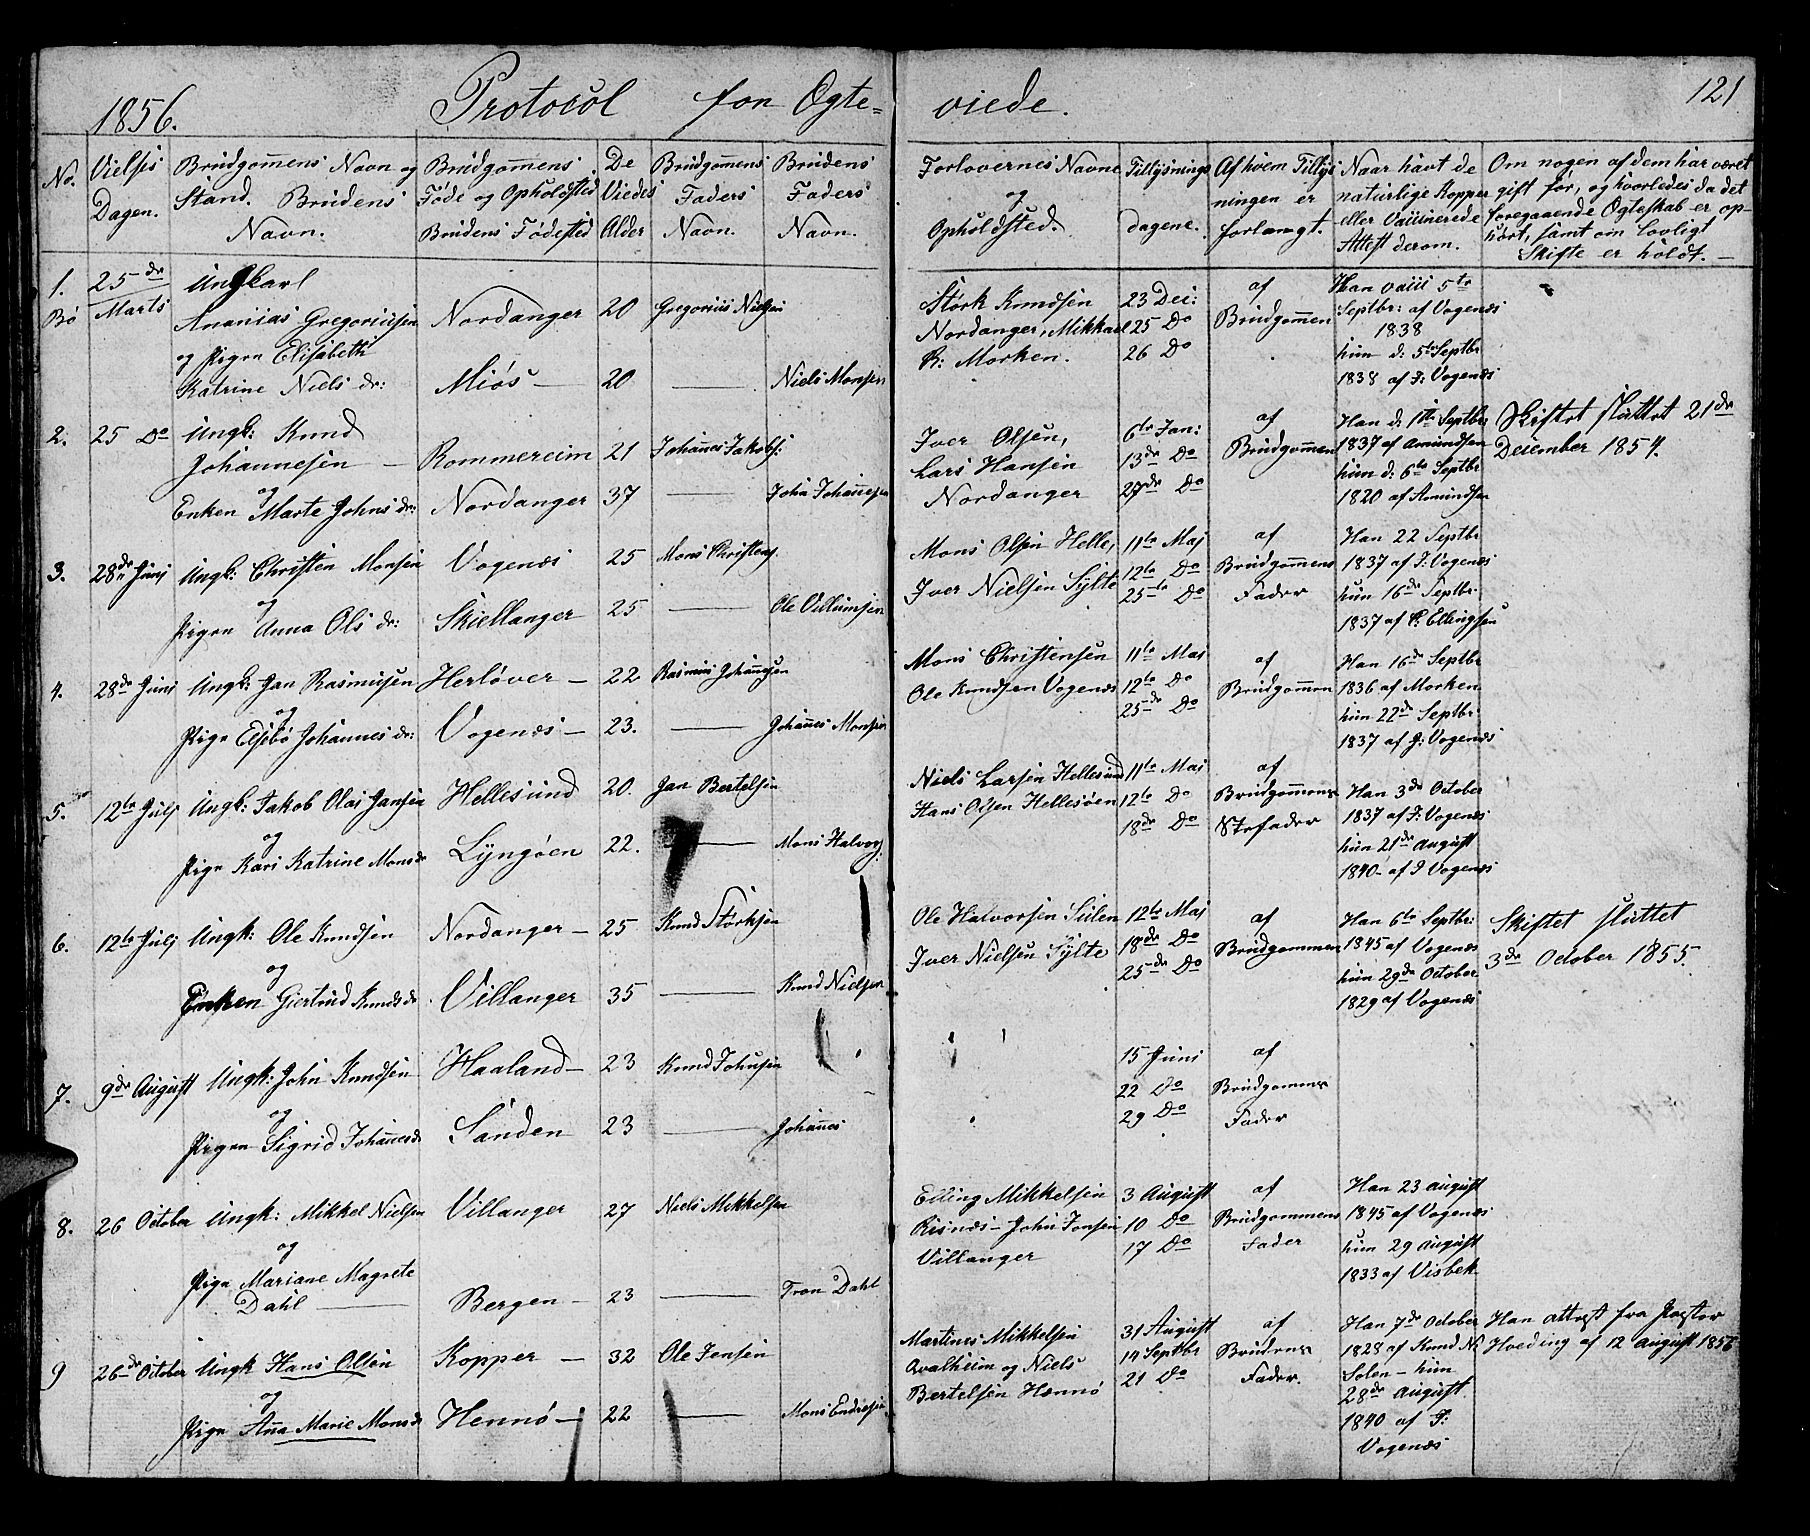 1856. Protocol fon Ogte= viede. 121
No. Vielses Dagen. Brudgomens Navn og Stand. Brudens Navn. Brudgomens Føde og Opholdsted Brudens Fødested De Viedes Alder Brudgomens Faders Navn. Brudens Faders Navn. Forlovernes Navne og Opholdsted. Tillysnings dagene. Af hvem Tillysningen er forlangt. Naar havt de naturlige Kopper eller Vaccinerede Attest derom. Om nogen af dem har været gift før, og hvorledes da det foregaaende Ogteskab er ophørt, samt om lovligt Skifte er holdt. —
1. Bø 25de Marts Ungkarl
Ananias Gregoriussen Nordanger 20 Gregorius Nielsen
og Pigen Elisabeth
Katrine Niels dr: Miøs — 20 — Niels Monsen
Størk Knudsen Nordanger, Mikkael R: Morken.
23 Dec: 25 Do 26 Do
af Brudgommen
Han vacci 5te Septbr: af Vogenæs 1838
hun d: 5te Septbr 1838 af J: Vogenæs
2. 25 Do Ungk: Knud
Johannesen — Rommereim 21 Johanes Jakobs:
og
Enken Marte Johns dr: Nordanger 37 — John Johanesen
Iver Olsen, Lars Hansen Nordanger
6te Jan: 13de Do 27de Do
af Brudgommen
Han d: 1te Septbr 1837 af Amundsen
hun d: 6te Septbr 1820 af Amundsen
Skiftet sluttet 21de December 1854.
3. 28de Junj Ungk: Christen Monsen Vogenæs 25 Mons Christens.
og
Pigen Anna Ols dr: Skiellanger 25 — Ole Villumsen
Mons Olsen Helle, Iver Nielsen Sylte
11te Maj 12te Do 25te Do
af Brudgommens Fader
Han 22 Septbr 1837 af J: Vogenæs
hun 16de Septbr. 1837 af P. Ellingsen
4. 28de Junj Ungk: Jan Rasmusen Herløver — 22 Rasmus Johannesen
og
Pige Elsebø Johannes dr: Vogenæs — 23. — Johanes Monsen
Mons Christensen Ole Knudsen Vogenæs
11te Maj 12te Do 25de Do
af Brudgommen
Han 16de Septbr 1836 af Morken.
hun 22de Septbr 1837 af J: Vogenæs
5. 12te Julj Ungk: Jakob Olai Jansen Hellesund 20. Jan Bertelsen
og
Pige Kari Katrine Monsdr Lyngøen 22. — Mons Halvors:
Niels Larsen Hellesund Hans Olsen Hellesøen
11te Maj 12te Do 18de Do
af Brudgommens Stefader
Han 3de October 1837 af J: Vogenæs
hun 21de August 1840 af J Vogenæs
6. 12te Julj Ungk: Ole Knudsen Nordanger — 25 Knud Størksen
og
Enken Giertrud Knudsdr. Villanger 35 — Knud Nielsen
Ole Halvorsen Sulen Iver Nielsen Sylte
12te Maj 18de Do 25de Do
af Brudgommen
Han 6te Septbr: 1845 af Vogenæs
hun 29de October 1829 af Vogenæs
Skiftet sluttet 3de October 1855.
7. 9de August Ungk: John Knudsen Haaland — 23 Knud Johnsen
og
Pigen Sigrid Johanesdr Sanden 23 — Johanes
15 Juni 22 Do 29 Do
af Brudgomens Fader
8. 26 October Ungk: Mikkel Nielsen Villanger 27 Niels Mikkelsen
og
Pige Mariane Magrete
Dahl — Bergen — 23 — Tron Dahl
Elling Mikkelsen Risnæs — John Jonsen Villanger
3 August 10 Do 17 Do
af Brudgommens Fader
Han 23 August 1845 af Vogenæs
hun 29 August 1833 af Visbek
9 26de October Ungk Hans Olsen Kopper — 32 Ole Jensen
og
Pige Ana Marie Monsdr Hennø — 22 — Mons Endresen
Martines Mikkelsen Qvalheim og Niels Bertelsen Hennø
31 August 14 Septbr 21 Do
af Brudens Fader.
Han 7de October 1828 af Knud N. Solen — hun 28de August 1840 af J: Vogenæs
Han attest fra Pastor Hveding af 12 August 1856